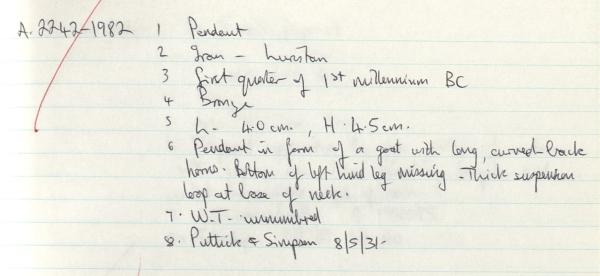 A. 2242-1982 1 Pendant
2 Iran - Luristan
3 First quarter of 1st millennium BC
4 Bronze
5 L- 4.0 cm. , H. 4.5 cm.
6 Pendant in form of a goat with long, curved-back
horns. Bottom of left hind leg missing. Thick suspension
loop at base of neck.
7. W.T. - unnumbered
8. Puttick & Simpson 8/5/31-